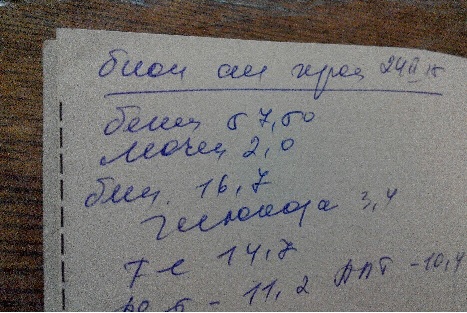 биох ан кров 24 II 15
белок 57,50
мочев 2,0
бил. 16,7
глюкоза 3,4
7 е 14,7
11,2 АЛТ - 10,4